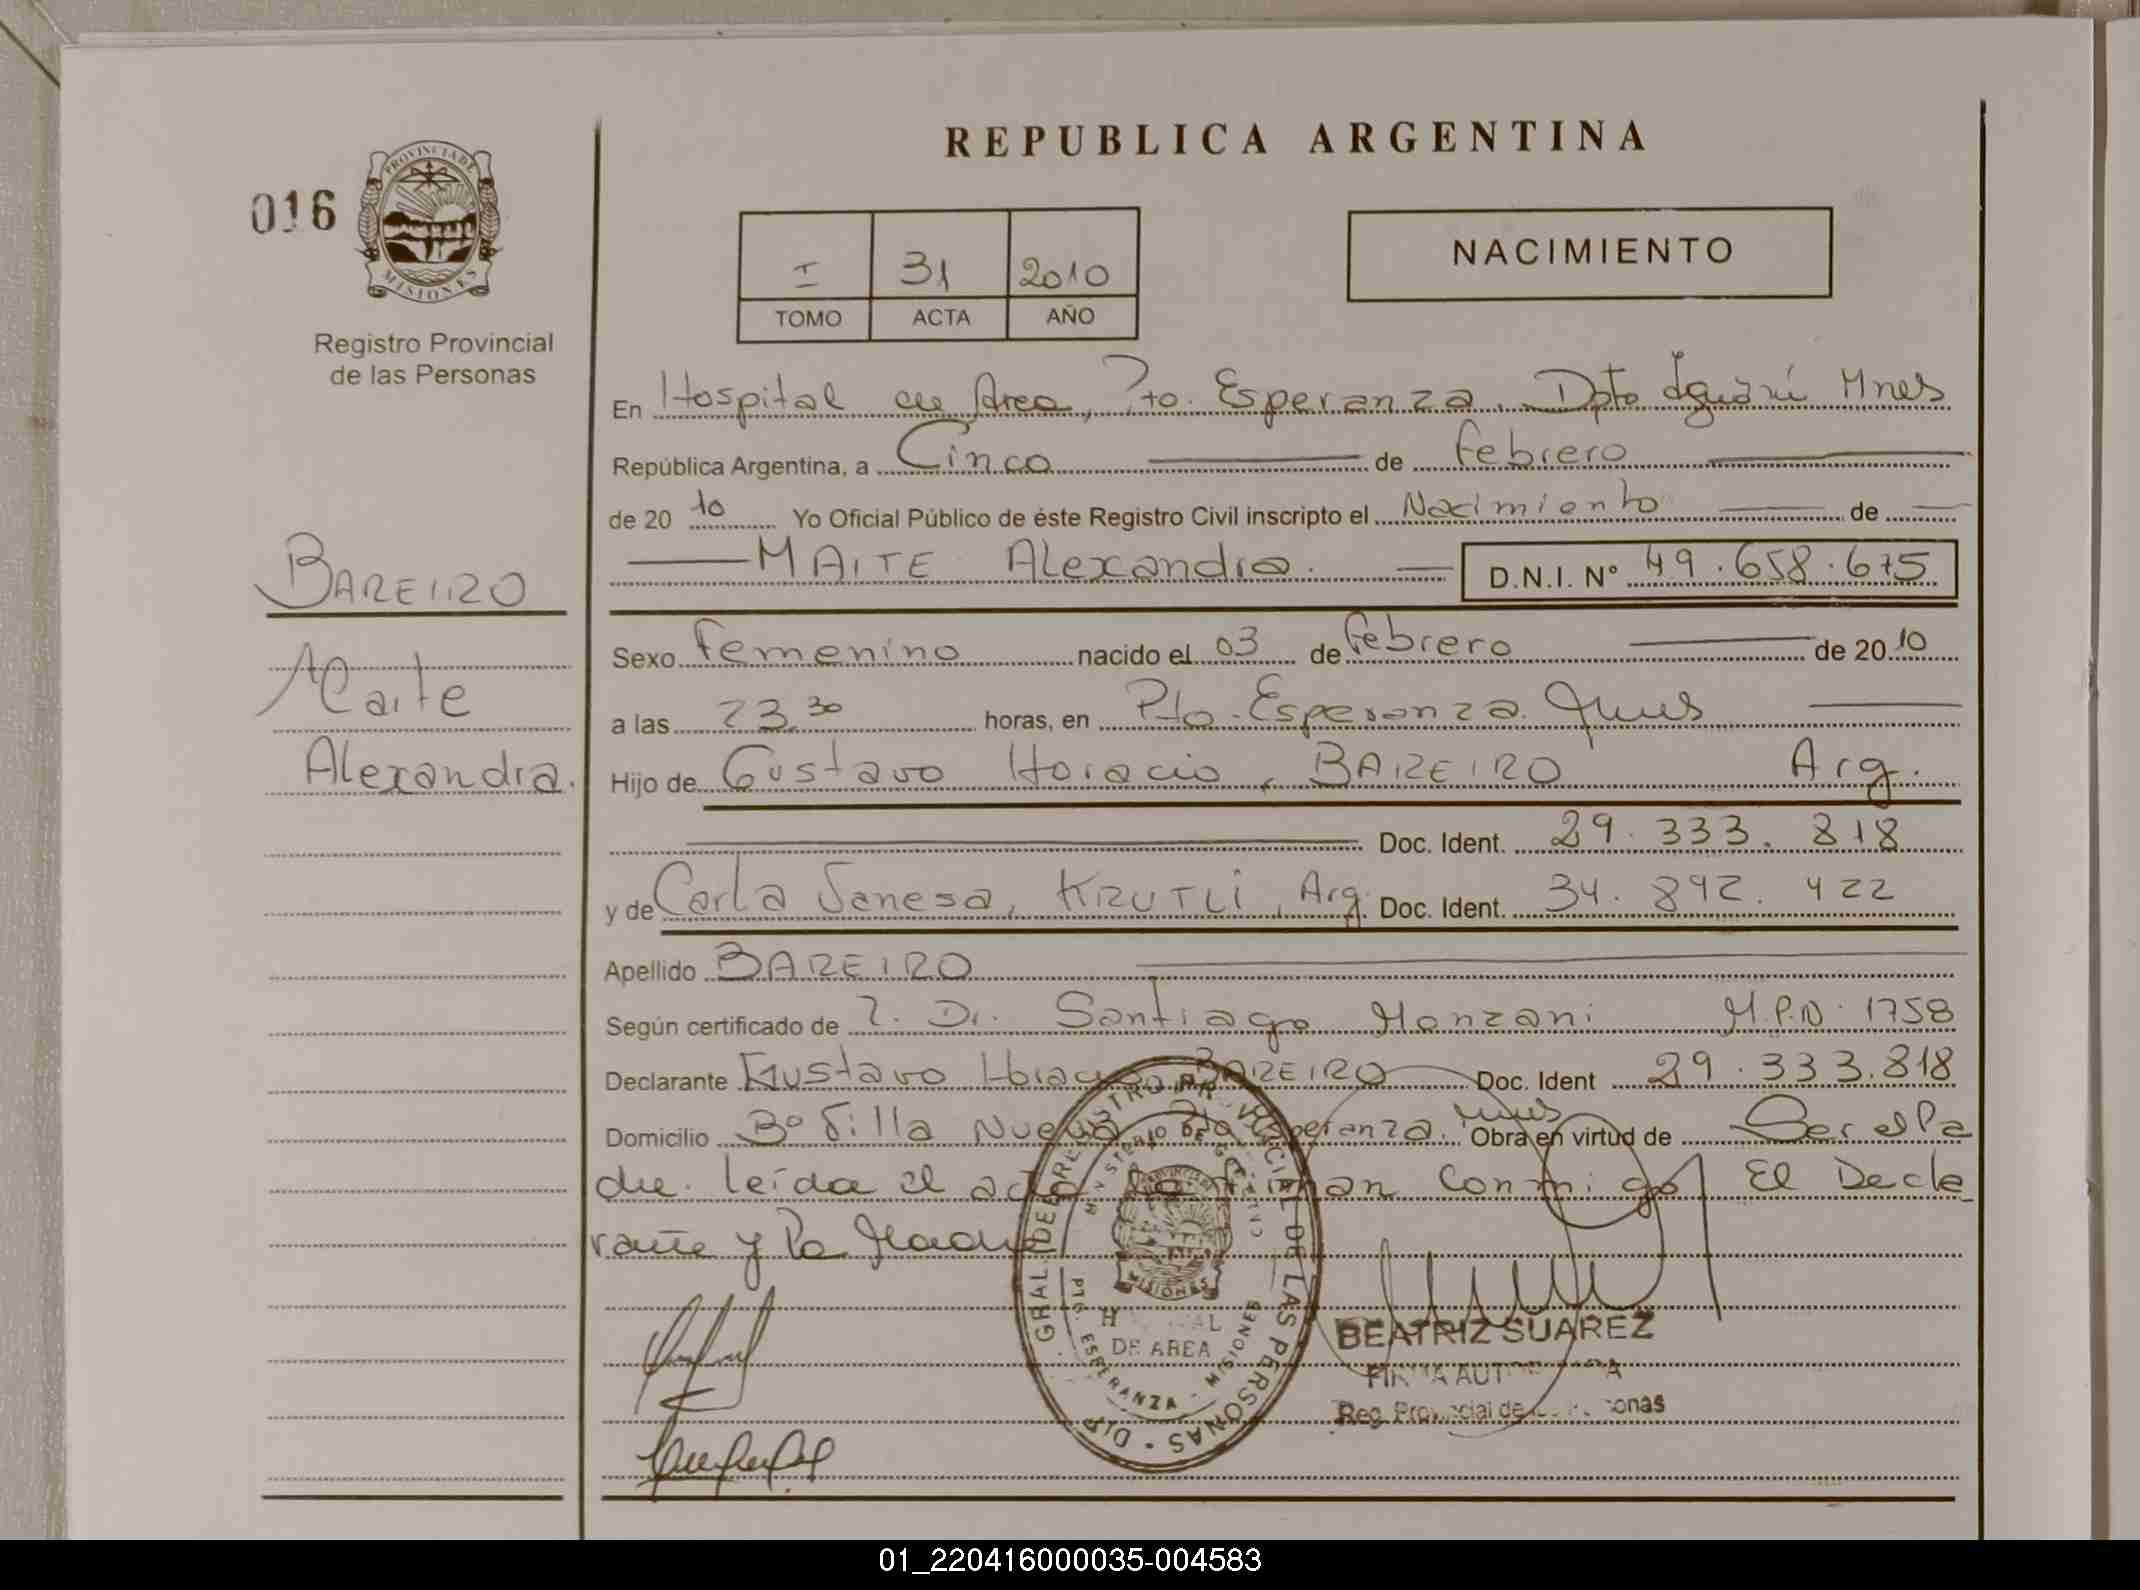 REPUBLICA ARGENTINA
016
PROVINCIA DE
MISIONES
Registro Provincial
de las Personas
I 31 2010
TOMO ACTA AÑO
NACIMIENTO
En Hospital de Area, Pto. Esperanza. Dpto Iguazú Mnes
República Argentina, a Cinco de Febrero
de 20 10 Yo Oficial Público de éste Registro Civil inscripto el Nacimiento de
MAITE Alexandra. D.N.I. Nº 49.658.675
BAREIRO
Maite
Alexandra.
Sexo Femenino nacido el 03 de Febrero de 20 10
a las 23.30 horas, en Pto. Esperanza Mnes
Hijo de Gustavo Horacio, BAREIRO Arg.
Doc. Ident. 29.333.818
y de Carla Vanesa, KRUTLI, Arg. Doc. Ident. 34.892.422
Apellido BAREIRO
Según certificado de Dr. Santiago Monzani M.P.N. 1758
Declarante Gustavo Horacio BAREIRO Doc. Ident 29.333.818
Domicilio Bº Villa Nueva Pto Esperanza. Mnes Obra en virtud de Ser el Pa
dre. leída el acta la firman conmigo El Decla
rante y la Madre
DIR. GRAL. DEL REGISTRO PROVINCIAL DE LAS PERSONAS
MINISTERIO DE GOBIERNO
MISIONES
HOSPITAL
DE AREA
PTO. ESPERANZA - MISIONES
BEATRIZ SUAREZ
FIRMA AUTORIZADA
Reg. Provincial de las Personas
01_220416000035-004583